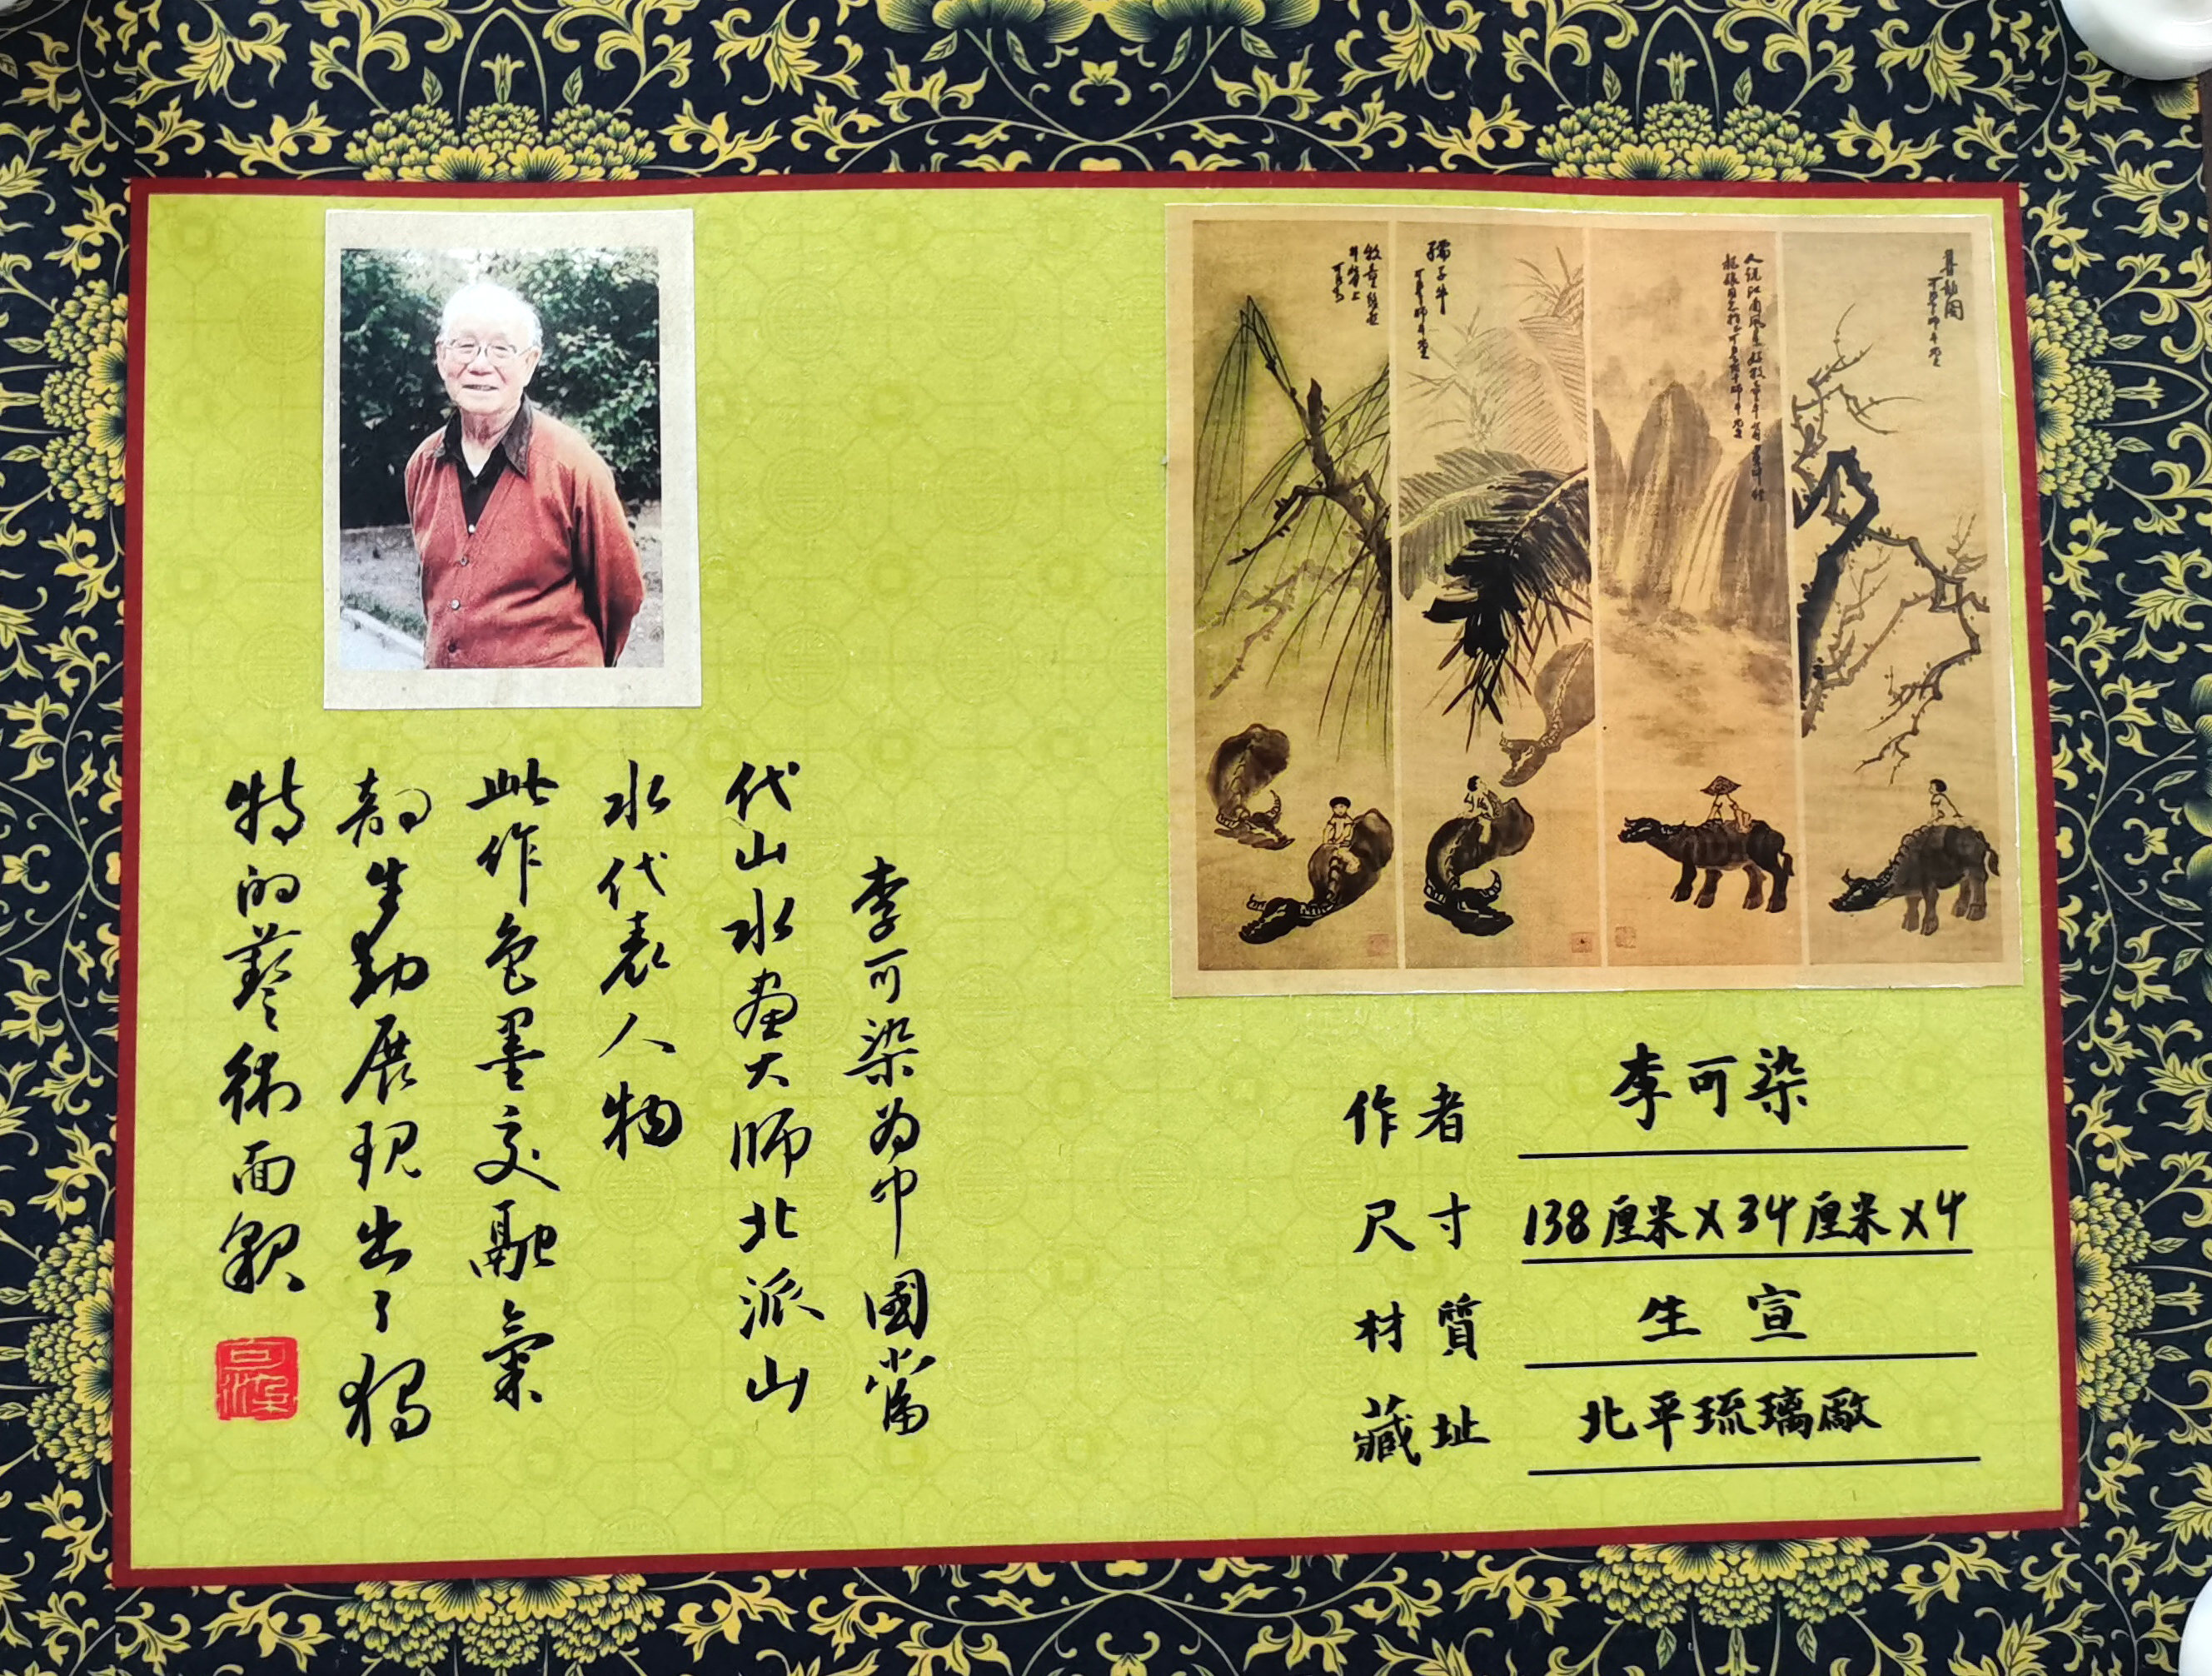 李可染为中國當
代山水畫大师北派山
水代表人物
此作色墨交融氣
韵生動展现出了獨
特的藝術面貌
孺子牛
作者 李可染
尺寸 138厘米X34厘米X4
材質 生宣
藏址 北平琉璃廠